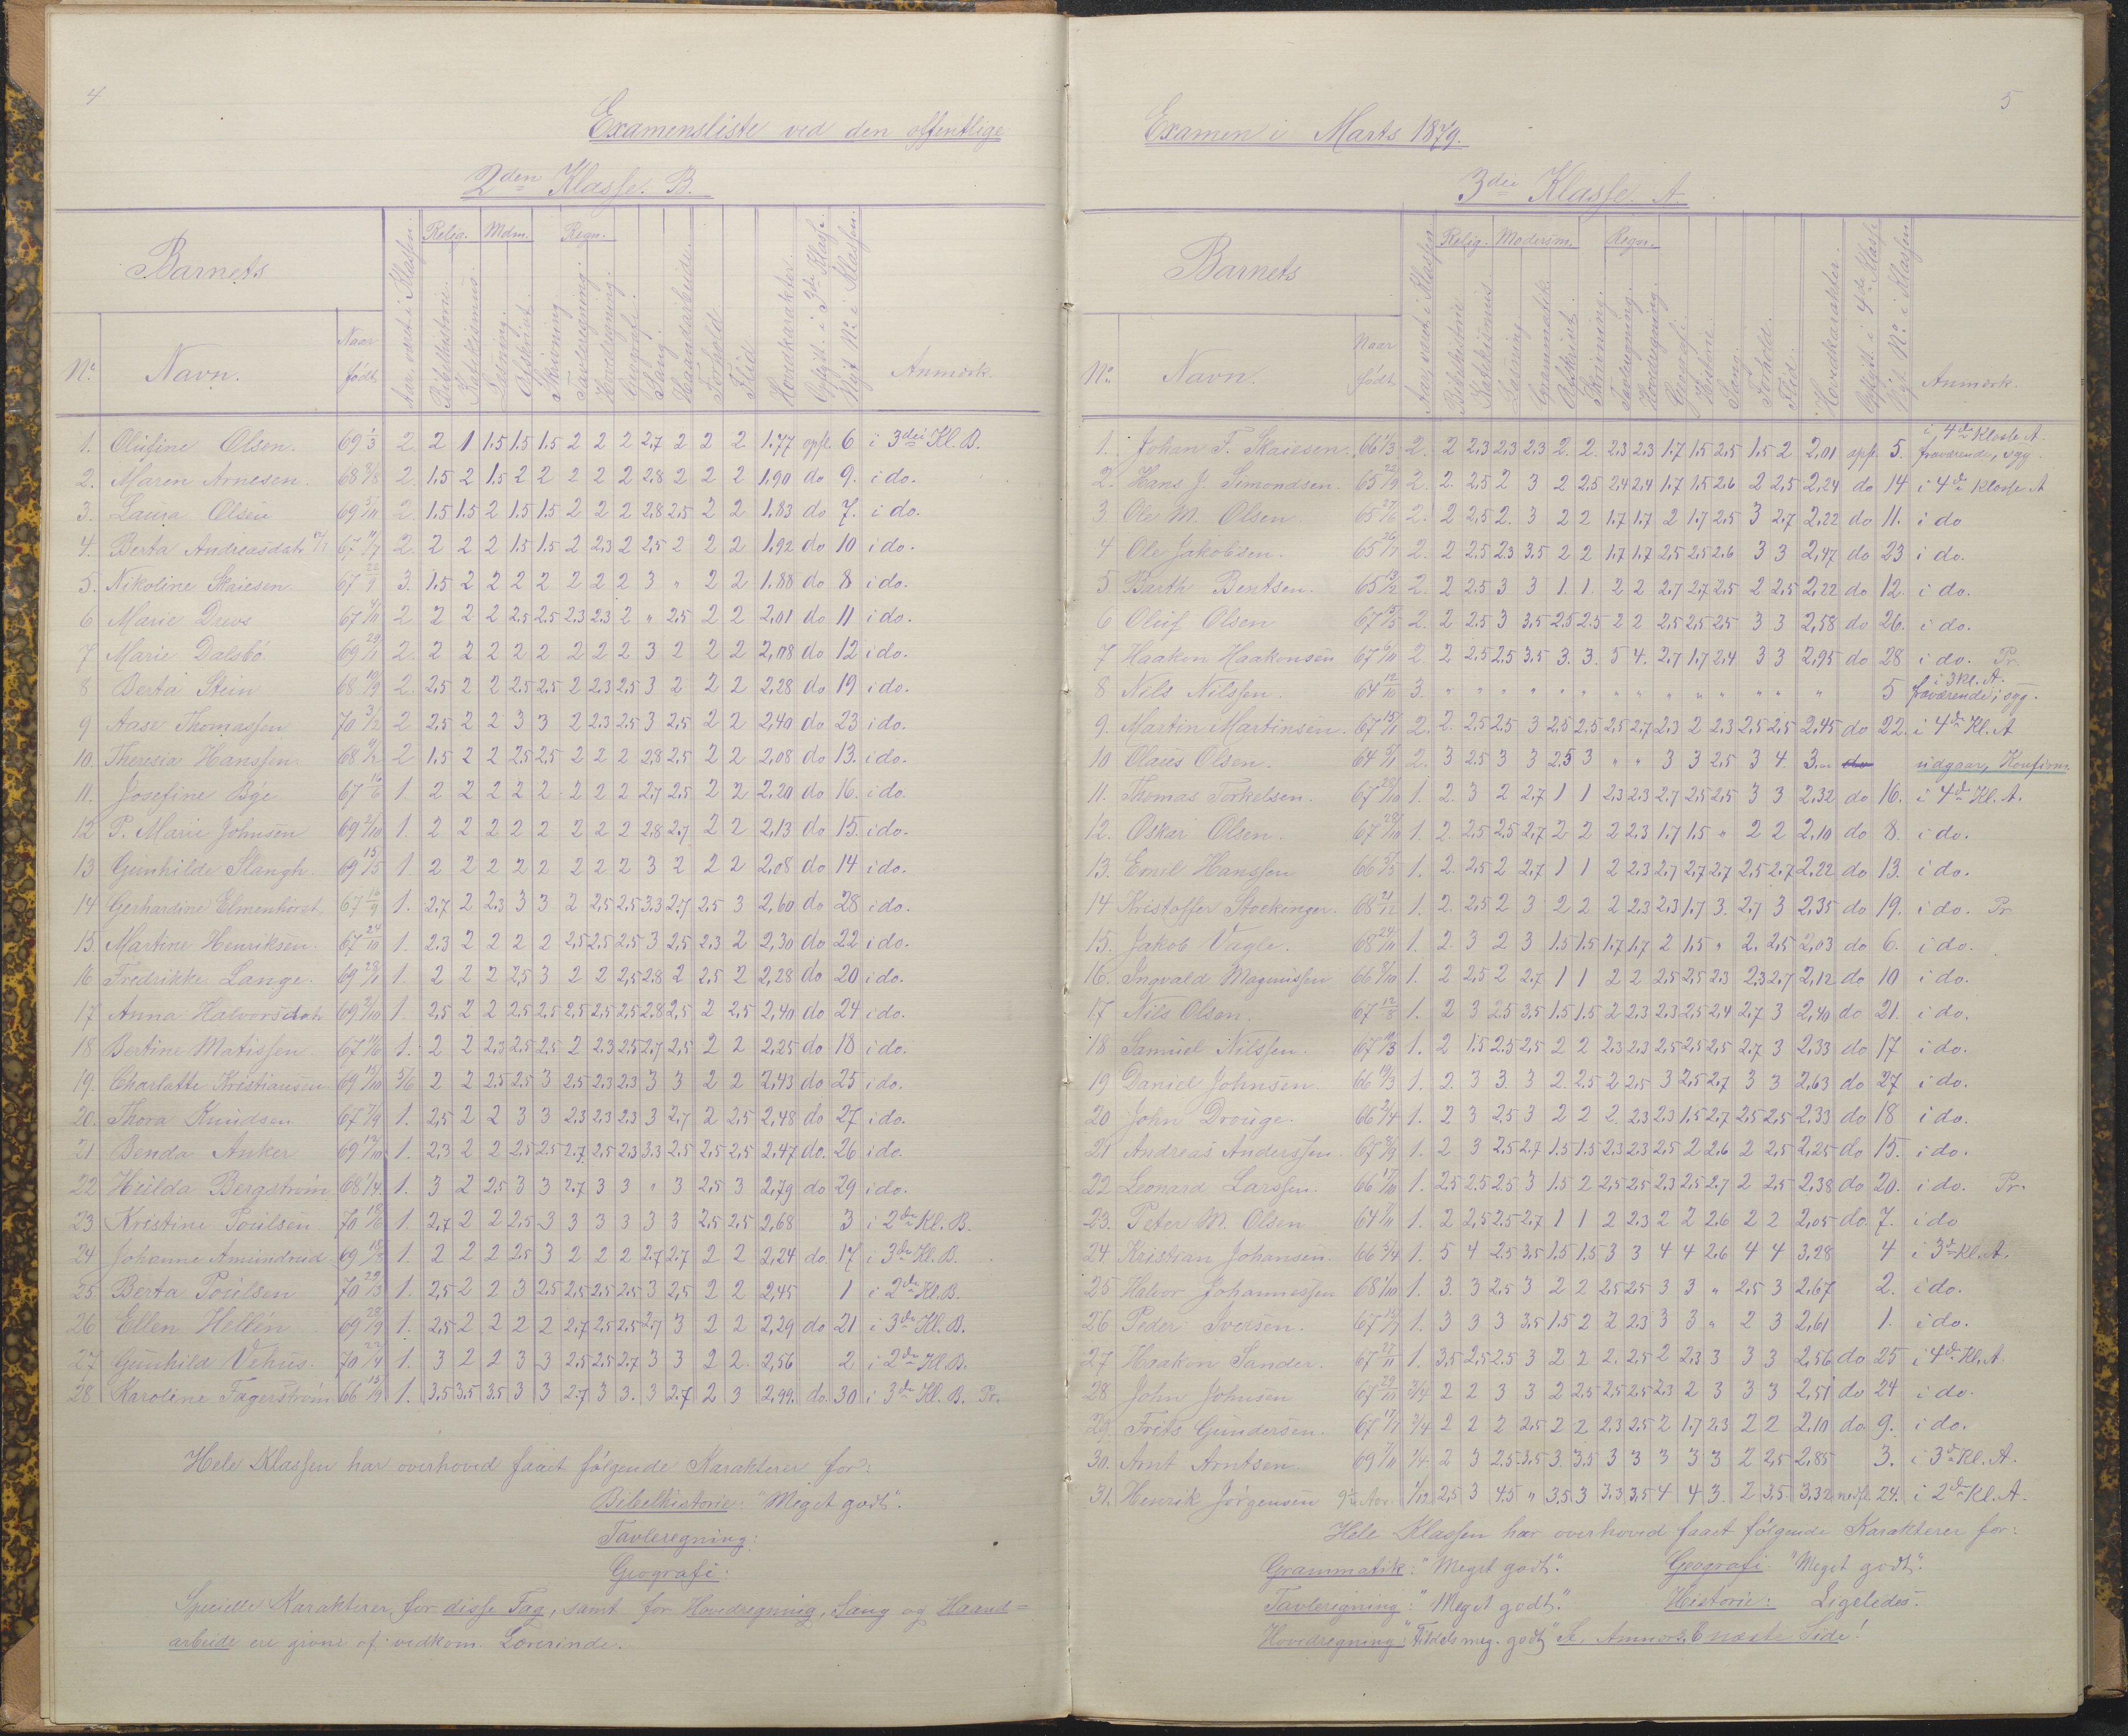 4
Examensliste ved den offentlige
2den Klasse. B.
Barnets
Relig. Mdm. Regn.
No. Navn. Naar født
Aar været i Klassen. Bibelhistorie. Katekismus Læsning. Opskrivt. Skrivning Tavleregning. Hovedregning. Geografi. Sang. Haandarbeide. Forhold Flid Hovedkarakter. Opflytt. i 3die Klasse. Nyt No. i Klassen. Anmærk.
1. Olufine Olsen. 69 1/3 2. 2 1 1.5 1.5 1.5 2 2 2 2.7 2 2 2 1.77 opfl. 6 i 3die Kl. B.
2. Maren Arnesen. 68 2. 1.5 2 1.5 2 2 2 2 2 2.8 2 2 2 1.90 do 9. i do.
3. Laura Olsen 69 2. 1.5 1.5 2 1.5 1.5 2 2 2 2.8 2.5 2 2 1.83 do 7. i do.
4. Berta Andreasdatr 67 2. 2 2 2 1.5 1.5 2 2.3 2 2.5 2 2 2 1.92 do 10 i do.
5. Nikoline Skaiesen. 67 22/9 3. 1.5 2 2 2 2 2 2 2 3 " 2 2 1.88 do 8 i do.
6 Marie Drevs 67 2 2 2 2 2.5 2.5 2.3 2.3 2 " 2.5 2 2 2.01 do 11 i do.
7 Marie Dalsbö. 69 2. 2 2 2 2 2 2 2 2 3 2 2 2 2,08 do 12 i do.
8 Berta Stein 68 2. 2.5 2 2 2.5 2.5 2 2.3 2.5 3 2 2 2 2.28 do 19 i do.
9 Aase Thomassen 70 3/12 2 2.5 2 2 3 3 2 2.3 2.5 3 2.5 2 2 2.40 do 23 i do.
10. Theresia Hanssen 68 2 1.5 2 2 2.5 2.5 2 2 2 2.8 2.5 2 2 2.08 do 13. i do.
11. Josefine Bge 67 16/6 1. 2 2 2 2 2 2 2 2 2.7 2.5 2 2 2.20 do 16. i do.
12 P. Marie Johnsen 69 2/10 1. 2 2 2 2 2 2 2 2 2.8 2.7 2 2 2.13 do 15. i do.
13 Gunhilde Slangh. 69 15/5 1. 2 2 2 2 2 2 2 2 3 2 2 2 2.08 do 14 i do.
14 Gerhardine Elmenhorst 67 16/9 1. 2.7 2 2.3 3 3 2 2.5 2.5 3.3 2.7 2.5 3 2.60 do 28 i do.
15 Martine Henriksen. 67 24/10 1. 2.3 2 2 2 2 2.5 2.5 2.5 3 2.5 2.3 2 2,30 do 22 i do.
16 Fredrikke Lange. 69 1. 2 2 2 2.5 3 2 2 2,5 2.8 2 2.5 2 2,28 do 20 i do.
17 Anna Halvorsdatr 69 2/10 1. 2.5 2 2 2.5 2.5 2.5 2.5 2.5 2.8 2.5 2 2.5 2,40 do 24 i do.
18 Bertine Matissen. 67 11/6 1. 2 2 2.3 2.5 2.5 2 2.3 2.5 2.7 2.5 2 2 2,25 do 18 i do.
19. Charlotte Kristiansen 69 15/10 5/6 2 2 2.5 2.5 3 2.5 2.3 2.3 3 3 2 2 2,43 do 25 i do.
20. Thora Knudsen 67 7/9 1. 2.5 2 2 3 3 2.3 2.3 2.3 3 2.7 2 2.5 2,48 do 27 i do.
21 Benda Anker 69 12/10 1. 2.3 2 2 2.5 2.5 2.7 2.5 2.3 3.3 2.5 2.5 2.5 2.47 do. 26 i do.
22 Hulda Bergström 68 1/4 1. 3 2 2.5 3 3 2.7 3 3 " 3 2.5 3 2,79 do 29 i do.
23 Kristine Poulsen 70 18/6 1. 2.7 2 2 2.5 3 3 3 3 3 3 2.5 2.5 2,68 3 i 2den Kl. B.
24 Johanne Amundrud 69 1. 2 2 2 2.5 3 2 2 2 2.7 2.7 2 2 2.24 do. 17 i 3die Kl. B.
25 Berta Poulsen 70 29/3 1. 2,5 2 2 3 2.5 2.5 2.5 2.5 3 2.5 2 2 2,45 1 i 2den Kl. B.
26 Ellen Hellén 69 28/9 1. 2.5 2 2 2 2 2.7 2.5 2.5 2.7 3 2 2 2,29 do 21 i 3die Kl. B.
27 Gunhild Vehus. 70 22/4 1. 3 2 2 3 3 2.5 2.5 2.7 3 3 2 2 2,56 2 i 2den Kl. B.
28 Karoline Fagerström 66 15/9 1. 3.5 3.5 3.5 3 3 2.7 3 3. 3 2.7 2 3 2,99. do. 30 i 3die Kl. B. Pr.
Hele Klassen har overhoved faaet følgende Karakterer for:
Bibelhistorie: "Meget godt".
Tavleregning:
Geografi:
Specielle Karakterer for disse Fag, samt for Hovedregning, Sang og Haand=
arbeide ere givne af vedkom. Lærerinde.
5
Examen i Marts 1879.
3die Klasse. A.
Barnets
Relig. Modersm. Regn.
No. Navn. Naar født
Aar været i Klassen Bibelhistorie Katekismus Læsning Grammatik Opskrivt. Skrivning. Tavleregning. Hovedregning. Geografi. Historie. Sang. Forhold. Flid. Hovedkarakter. Opflytt. i 4de Klasse Nyt No. i Klassen Anmærk.
1. Johan F. Skaiesen. 66 1/3 2. 2 2.3 2.3 2.3 2. 2. 2.3 2.3 1.7 1.5 2.5 1.5 2 2,01 opfl. 5. i 4de Klasse A. fraværende, syg.
2. Hans J. Simondsen. 65 2. 2. 2.5 2 3 2 2.5 2.4 2.4 1.7 1.5 2.6 2 2.5 2,24 do 14 i 4de Klasse A
3. Ole M. Olsen 65 27/6 2. 2 2.5 2. 3 2 2 1.7 1.7 2 1.7 2.5 3 2.7 2,22 do 11. i do
4 Ole Jakobsen. 65 2. 2 2.5 2.3 3.5 2 2 1.7 1.7 2.5 2.5 2.6 3 3 2,47 do 23 i do.
5 Barth Bentsen. 65 13/12 2. 2 2.5 3 3 1. 1. 2 2 2.7 2.7 2.5 2 2.5 2,22 do 12. i do.
6 Oluf Olsen 67 15/5 2. 2 2.5 3 3.5 2.5 2.5 2 2 2.5 2.5 2.5 3 3 2,58 do 26. i do.
7 Haakon Haakonsen 67 2. 2 2.5 2.5 3.5 3. 3. 5 4. 2.7 1.7 2.4 3 3 2,95 do 28 i do. Pr.
8 Nils Nilssen. 64 12/10 3. " " " " " " " " " " " " " " 5 i 3 Kl. A. fraværende; syg.
9. Martin Martinsen. 67 2. 2. 2.5 2.5 3 2.5 2.5 2.5 2.7 2.3 2 2.3 2.5 2.5 2,45 do 22. i 4de Kl. A
10 Olaus Olsen. 64 2. 3 2.5 3 3 2.5 3 " " 3 3 2.5 3 4. 3.00 do udgaar, Konfirm.
11. Thomas Torkelsen. 67 28/10 1. 2. 3 2 2.7 1 1 2.3 2.3 2.7 2.5 2.5 3 3 2.32 do 16. i 4de Kl. A.
12. Oskar Olsen. 67 28/10 1. 2. 2.5 2.5 2.7 2 2 2 2.3 1.7 1.5 " 2 2 2.10 do 8. i do.
13. Emil Hanssen 66 1. 2. 2.5 2 2.7 1 1 2 2.3 2.7 2.7 2.7 2.5 2.7 2,22 do 13. i do.
14 Kristoffer Stockinger. 68 21/12 1. 2. 2.5 2 3 2 2 2 2.3 2.3 1.7 3. 2.7 3 2,35 do 19. i do. Pr
15. Jakob Vagle. 68 24/10 1. 2. 3 2 3 1.5 1.5 1.7 1.7 2 1.5 " 2. 2.5 2,03 do 6. i do.
16. Ingvald Magnussen 66 1. 2 2.5 2 2.7 1 1 2 2 2.5 2.5 2.3 2.3 2.7 2,12 do 10 i do.
17 Nils Olsen. 67 12/8 1. 2 3 2.5 3.5 1.5 1.5 2 2.3 2.3 2.5 2.4 2.7 3 2,40 do 21. i do.
18 Samuel Nilssen. 67 1. 2 1.5 2.5 2.5 2 2 2.3 2.3 2.5 2.5 2.5 2.7 3 2,33 do 17 i do.
19 Daniel Johnsen. 66 19/3 1. 2. 3 3. 3 2. 2.5 2 2.5 3 2.5 2.7 3 3 2,63 do 27 i do.
20 John Drouge. 66 2/4 1. 2 3 2.5 3 2 2 2 2.3 2.3 1.5 2.7 2.5 2.5 2.33 do 18 i do.
21 Andreas Anderssen. 67 1. 2 3 2.5 2.7 1.5 1.5 2.3 2.3 2.5 2 2.6 2 2.5 2,25 do 15. i do.
22 Leonard Larssen. 66 17/10 1. 2.5 2.5 2.5 3 1.5 2 2.5 2.5 2.3 2.5 2.7 2 2.5 2.38 do 20. i do. Pr.
23. Peter M. Olsen 64 1. 2 2.5 2.5 2.7 1 1 2 2.3 2 2 2.6 2 2 2,05 do. 7. i do
24 Kristian Johansen. 66 5/4 1. 5 4 2.5 3.5 1.5 1.5 3 3 4 4 2.6 4 4 3.28 4 i 3die Kl. A.
25 Halvor Johannessen 68 1/10 1. 3. 3 2.5 3 2 2 2.5 2.5 3 3 " 2.5 3 2.67 2. i do.
26 Peder Iversen. 67 1. 3 3 3 3.5 1.5 2 2 2.3 3 3 " 2 3 2,61 1. i do.
27 Haakon Sander. 67 27/11 1. 3.5 2.5 2.5 3 2 2 2. 2.5 2 2.3 3 3 3 2,56 do 25 i 4de Kl. A
28 John Johnsen 67 29/10 3/4 2 2 3 3 2 2.5 2.5 2.5 2.3 2 3 3 3 2,51 do 24 i do.
29 Frits Gundersen. 67 3/4 2 2 2 2.5 2 2 2.3 2.5 2 1.7 2.3 2 2 2.10 do 9. i do.
30. Arnt Arntsen 69 1/4 2 3 2.5 3.5 3. 3.5 3 3 3 3 3 2 2.5 2,85 3. i 3die Kl. A.
31. Henrik Jørgensen 9½ Aar. 1/12 2.5 3 4.5 " 3.5 3 3.3 3.5 4 4 3. 2 3.5 3.32 nedfl. 24. i 2den Kl. A.
Hele Klassen har overhoved faaet følgende Karakterer for:
Grammatik: "Meget godt". Geografi "Meget godt".
Tavleregning: "Meget godt." Historie: Ligeledes.
Hovedregning: "Tildels meg. godt" Se Anmærk. næste Side!